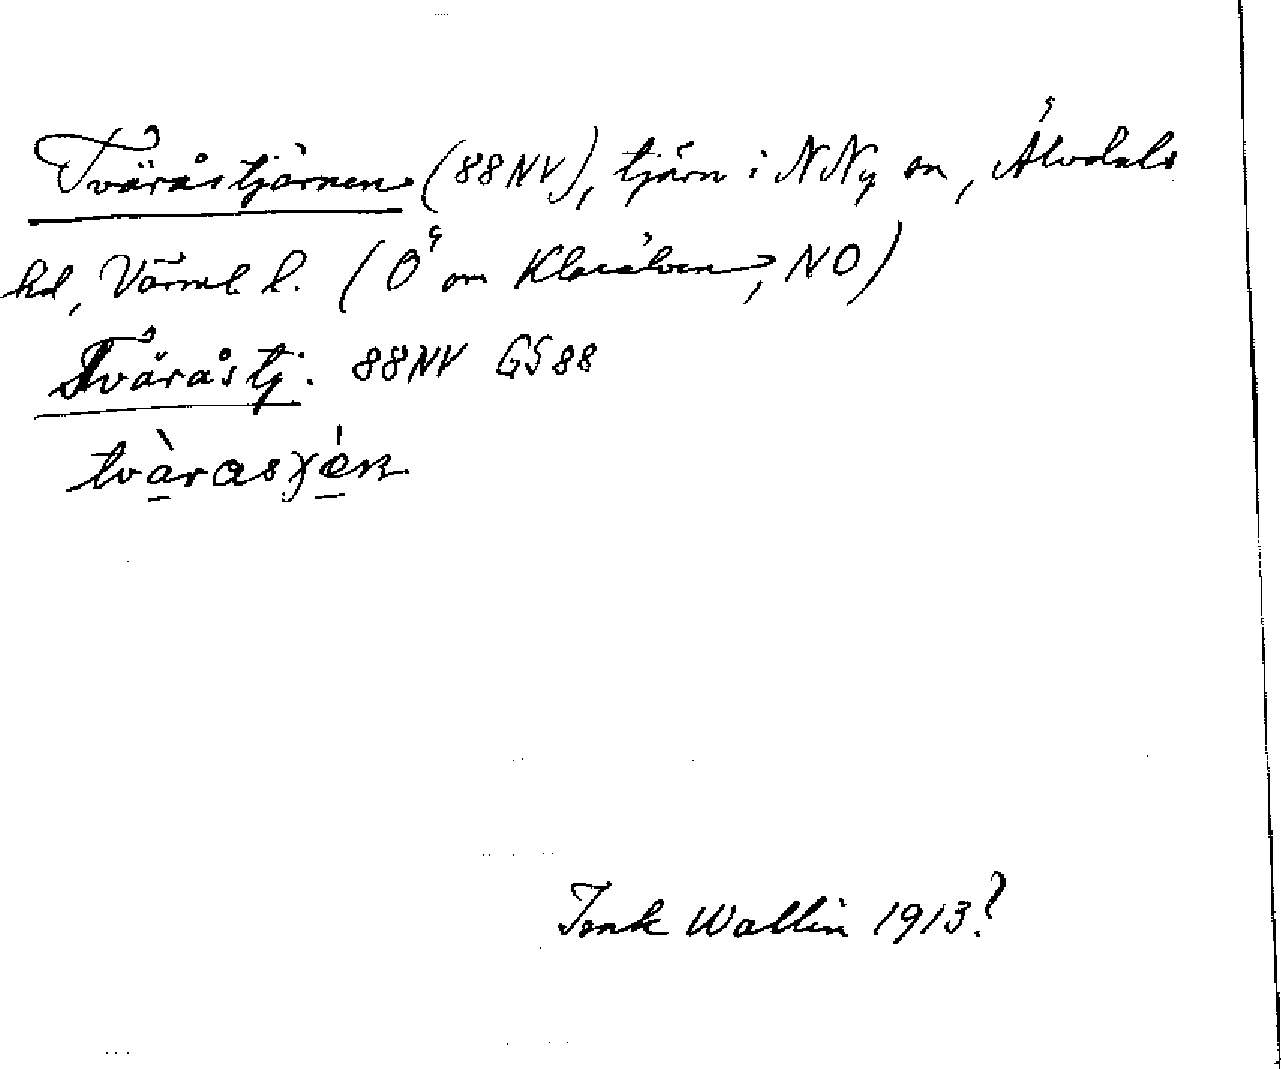 Tväråstjärnen (88NV), tjärn i N Ny sn, Älvdals
hd, Värml l. (Ö om Klarälven, NO)
Tväråstj. 88NV GS88
tvàrasχén
Jonk Wallin 1913?